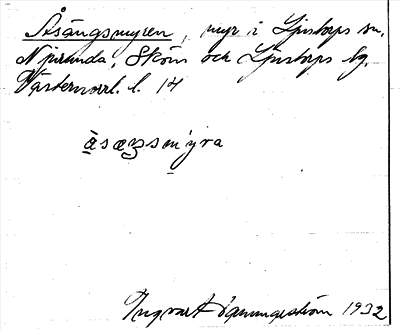 Åsängsmyren, myr i Ljustorps sn.
Njurunda, Sköns och Ljustorps tg.
Västernorrl. l. 14
àsæŋsmỳra
Ingvart 1932